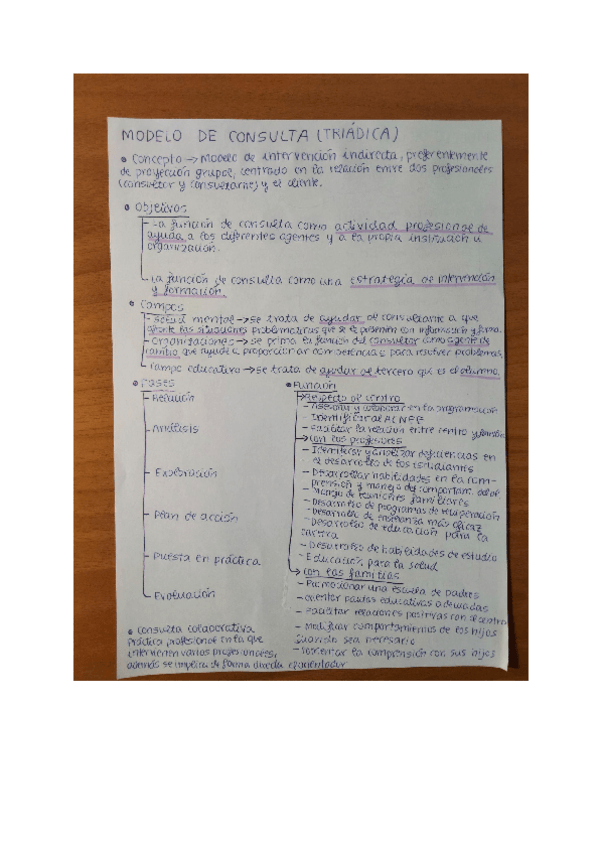 MODELO DE CONSULTA (TRIÁDICA)
• Concepto → Modelo de intervención indirecta, preferentemente
de proyección grupal, centrado en la relación entre dos profesionales
(consultor y consultante) y el cliente.
• Objetivos
- La función de consulta como actividad profesional de
ayuda a los diferentes agentes y a la propia institución u
organización.
- La función de consulta como una estrategia de intervención
y formación.
• Campos
- Salud mental → se trata de ayudar al consultante a que
afronte las situaciones problemáticas que se le presentan con información y forma.
- Organizaciones → se prima la función del consultor como agente de
cambio que ayuda a proporcionar competencias para resolver problemas.
- Campo educativo → se trata de ayudar al tercero que es el alumno.
• Fases
- Relación
- Análisis
- Exploración
- Plan de acción
- Puesta en práctica
- Evaluación
• Consulta colaborativa
Práctica profesional en la que
intervienen varios profesionales,
además se implica de forma directa el orientador
• Función
→ Respecto al centro
- Asesorar y colaborar en la programación
- Identificar al ACNEE
- Facilitar la relación entre centro y familia
→ Con los profesores
- Identificar y analizar deficiencias en
el desarrollo de los estudiantes
- Desarrollar habilidades en la com-
prensión y manejo del comportam. del al.
- Manejo de reuniones familiares
- Desarrollo de programas de recuperación
- Desarrollo de enseñanza más eficaz
- Desarrollo de Educación para la
carrera
- Desarrollo de habilidades de estudio
- Educación para la salud
→ Con las familias
- Promocionar una escuela de padres
- Orientar pautas educativas adecuadas
- Facilitar relaciones positivas con el centro
- Modificar comportamientos de los hijos
cuando sea necesario
- Fomentar la comprensión con sus hijos